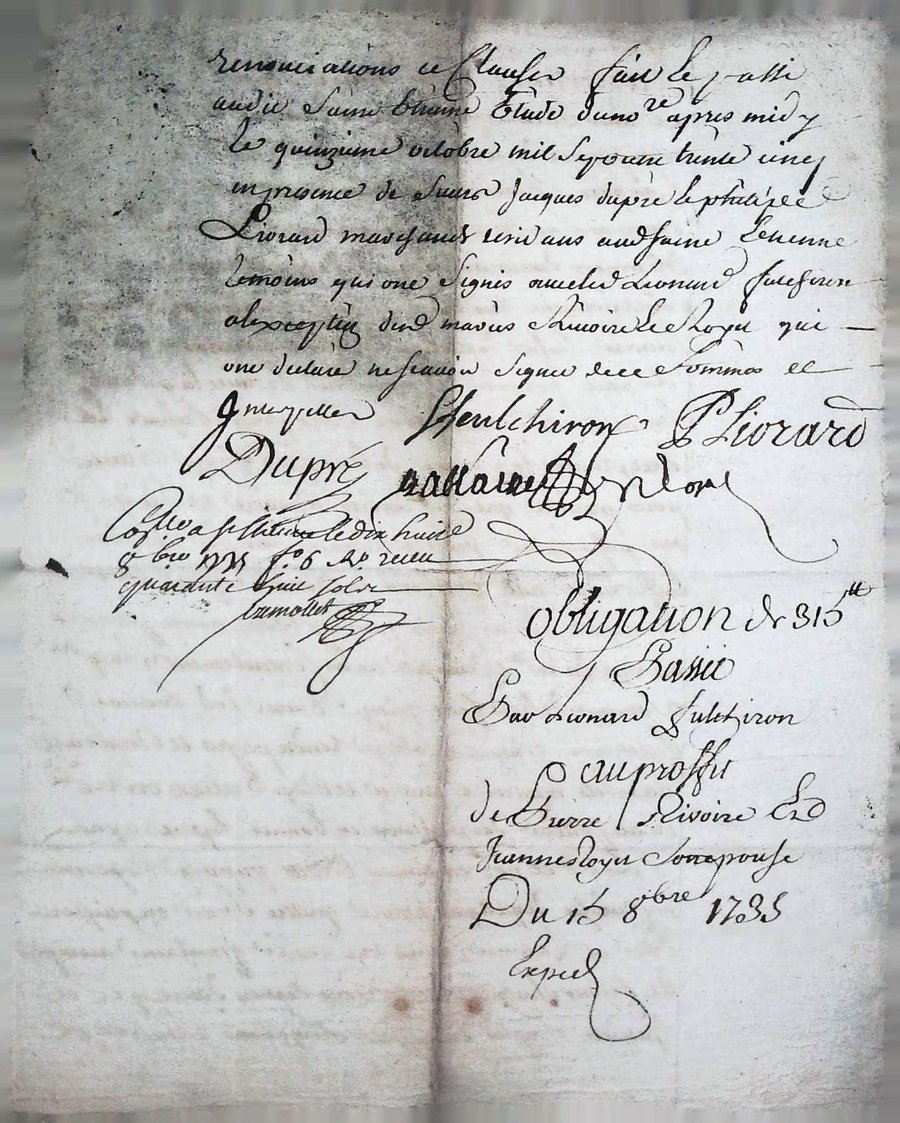 renonciations et Clauses fait et passé
audit Saint Etienne Etude du no.re apres midy
le quinzieme octobre mil sept cent trente cinq
en presence de sieurs Jacques dupré et philipe
Liorard marchands residans aud saint Etienne
temoins qui ont signés avec led Leonard fulchiron
a l'exception desd mariés Rivoire et Royet qui
ont declaré ne scavoir signer de ce sommés et
Interpellés Fleulchiron P Liorard
Dupré
a st Etienne le dix huit
8bre 1735 fo. 6 Ro. recu
quarante huit sols
obligation de 315 tt
Passée
Par Leonard fulchiron
au proffit
de Pierre Rivoire Et
Jeanne Royet son epouse
Du 15 8bre 1735
Exped